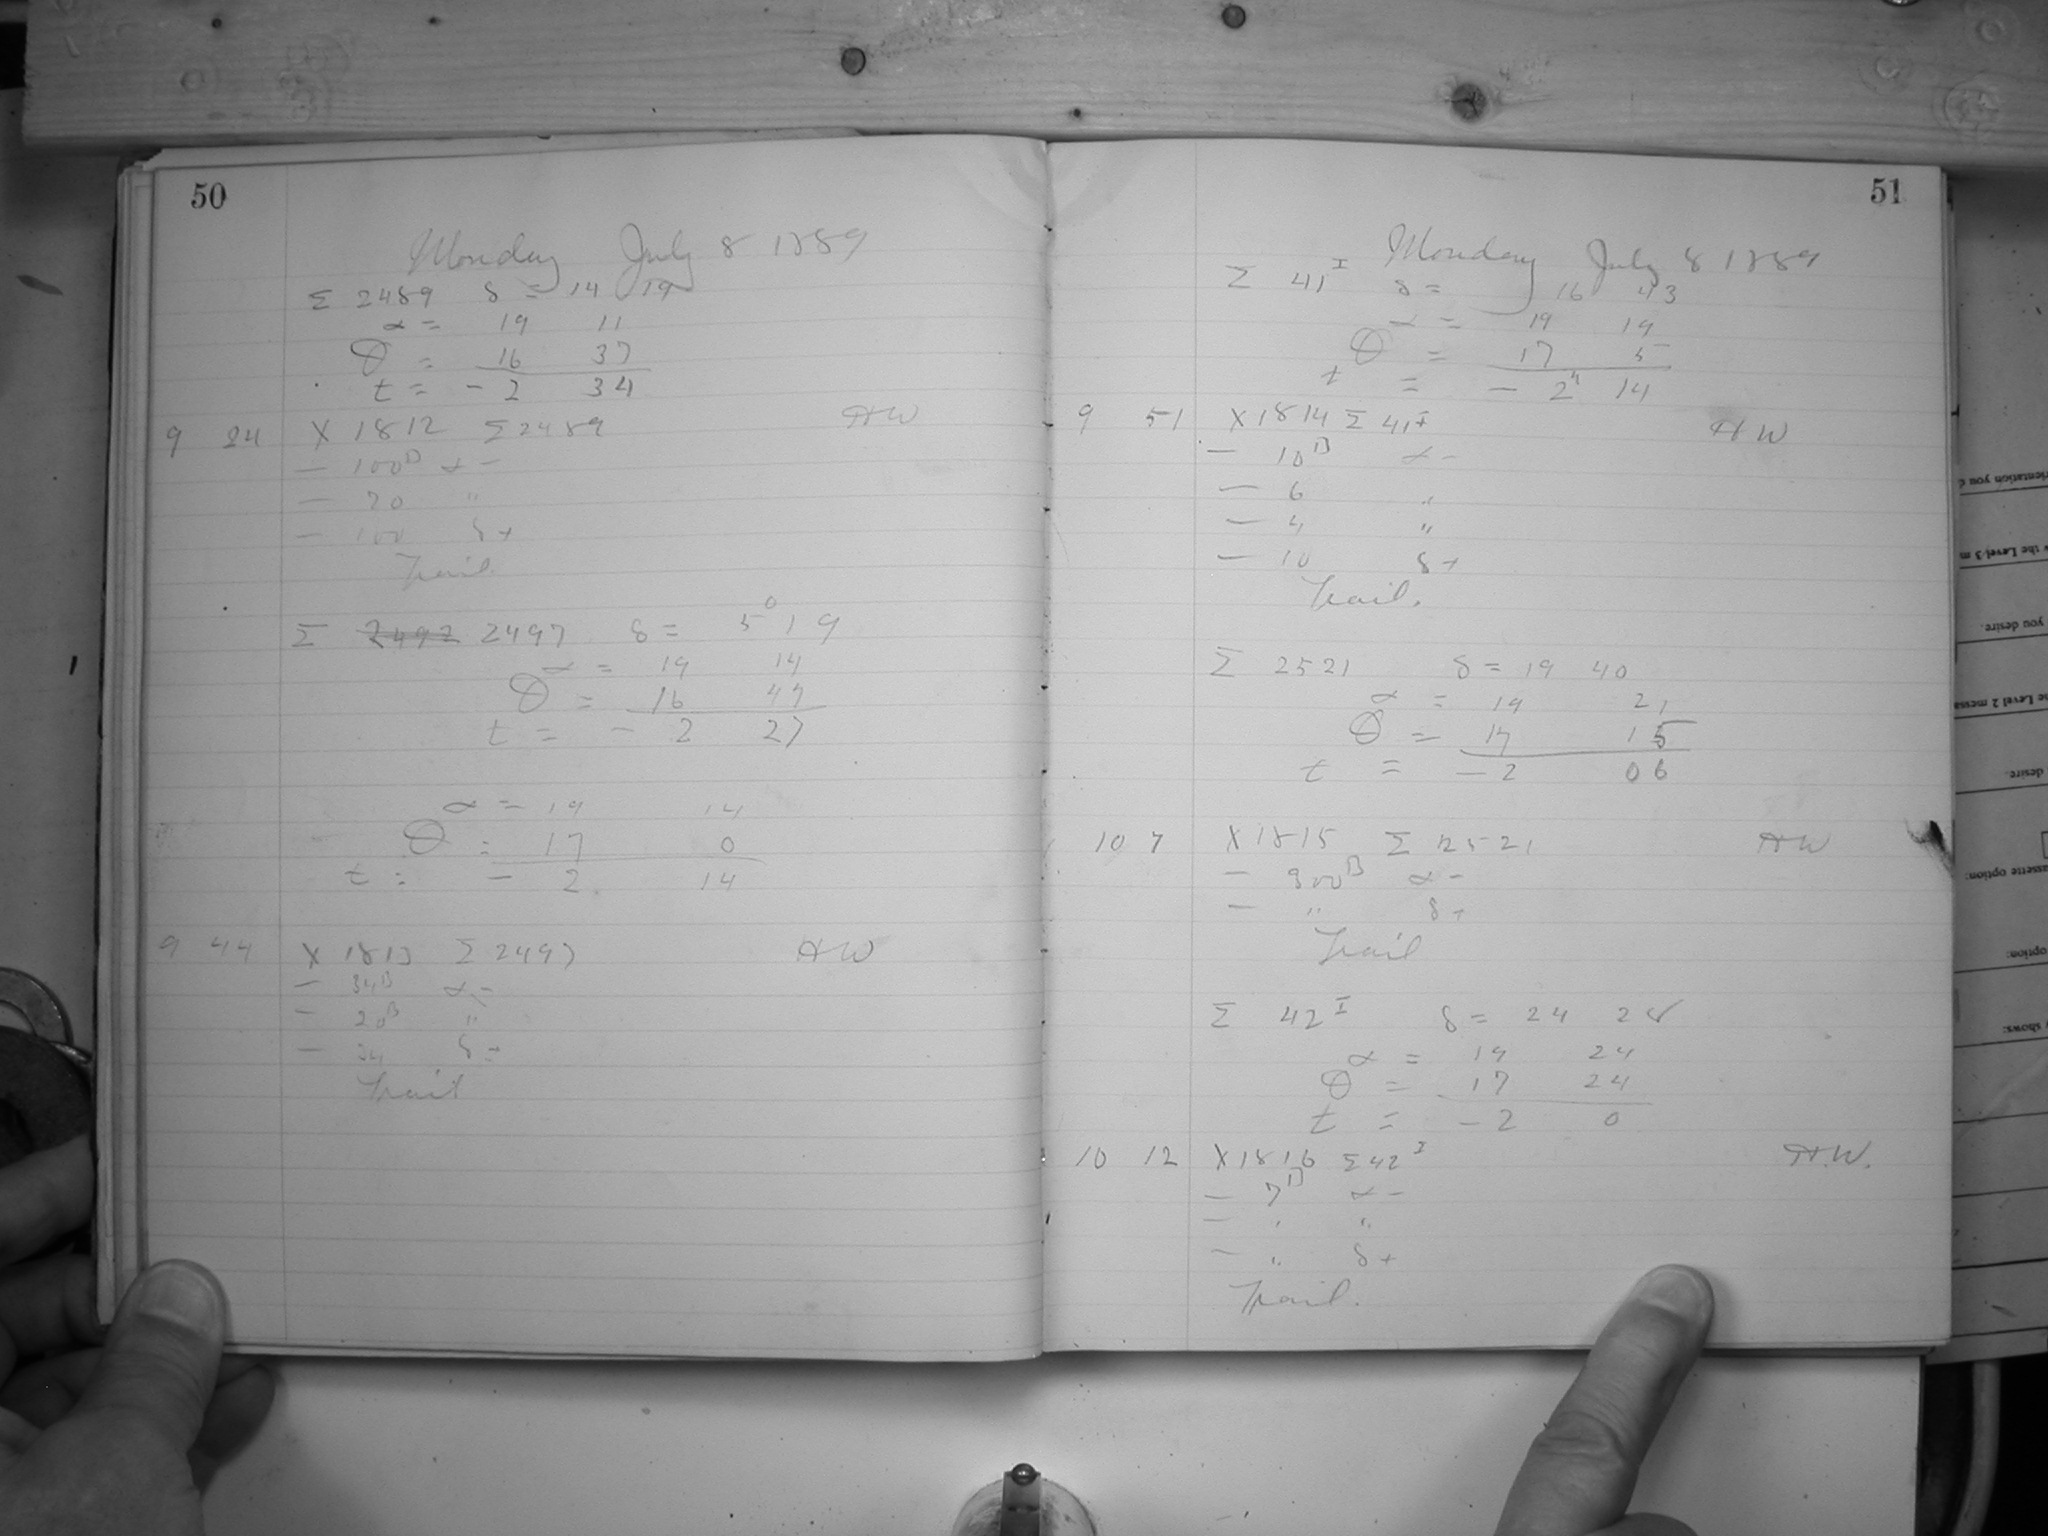 50
Monday July 8 1889
Σ 2489 δ = 14 19
α = 19 11
θ = 16 37
t = - 2 34
9 24 X 1812 Σ 2489 HW
- 100B α -
- 70 "
- 100 δ +
Trail.
Σ 2492 2497 δ = 5° 19
α = 19 14
θ = 16 47
t = - 2 27
α = 19 14
θ = 17 0
t = - 2 14
9 44 X 1813 Σ 2497 HW
- 34B α -
- 20B "
- 34 δ +
Trail
51
Monday July 8 1889
Σ 41 I δ = 16 43
α = 19 19
θ = 17 5
t = - 2h 14
9 51 X 1814 Σ 41 I HW
- 10B α -
- 6 "
- 4 "
- 10 δ +
Trail.
Σ 2521 δ = 19 40
α = 19 21
θ = 17 15
t = - 2 06
10 7 X 1815 Σ 2521 HW
- 300B α -
- " δ +
Trail
Σ 42 I δ = 24 28
α = 19 24
θ = 17 24
t = - 2 0
10 12 X 1816 Σ 42 I H.W.
- 7B α -
- " "
- " δ +
Trail.
you desire.
desire.
cassette option:
option:
shows: